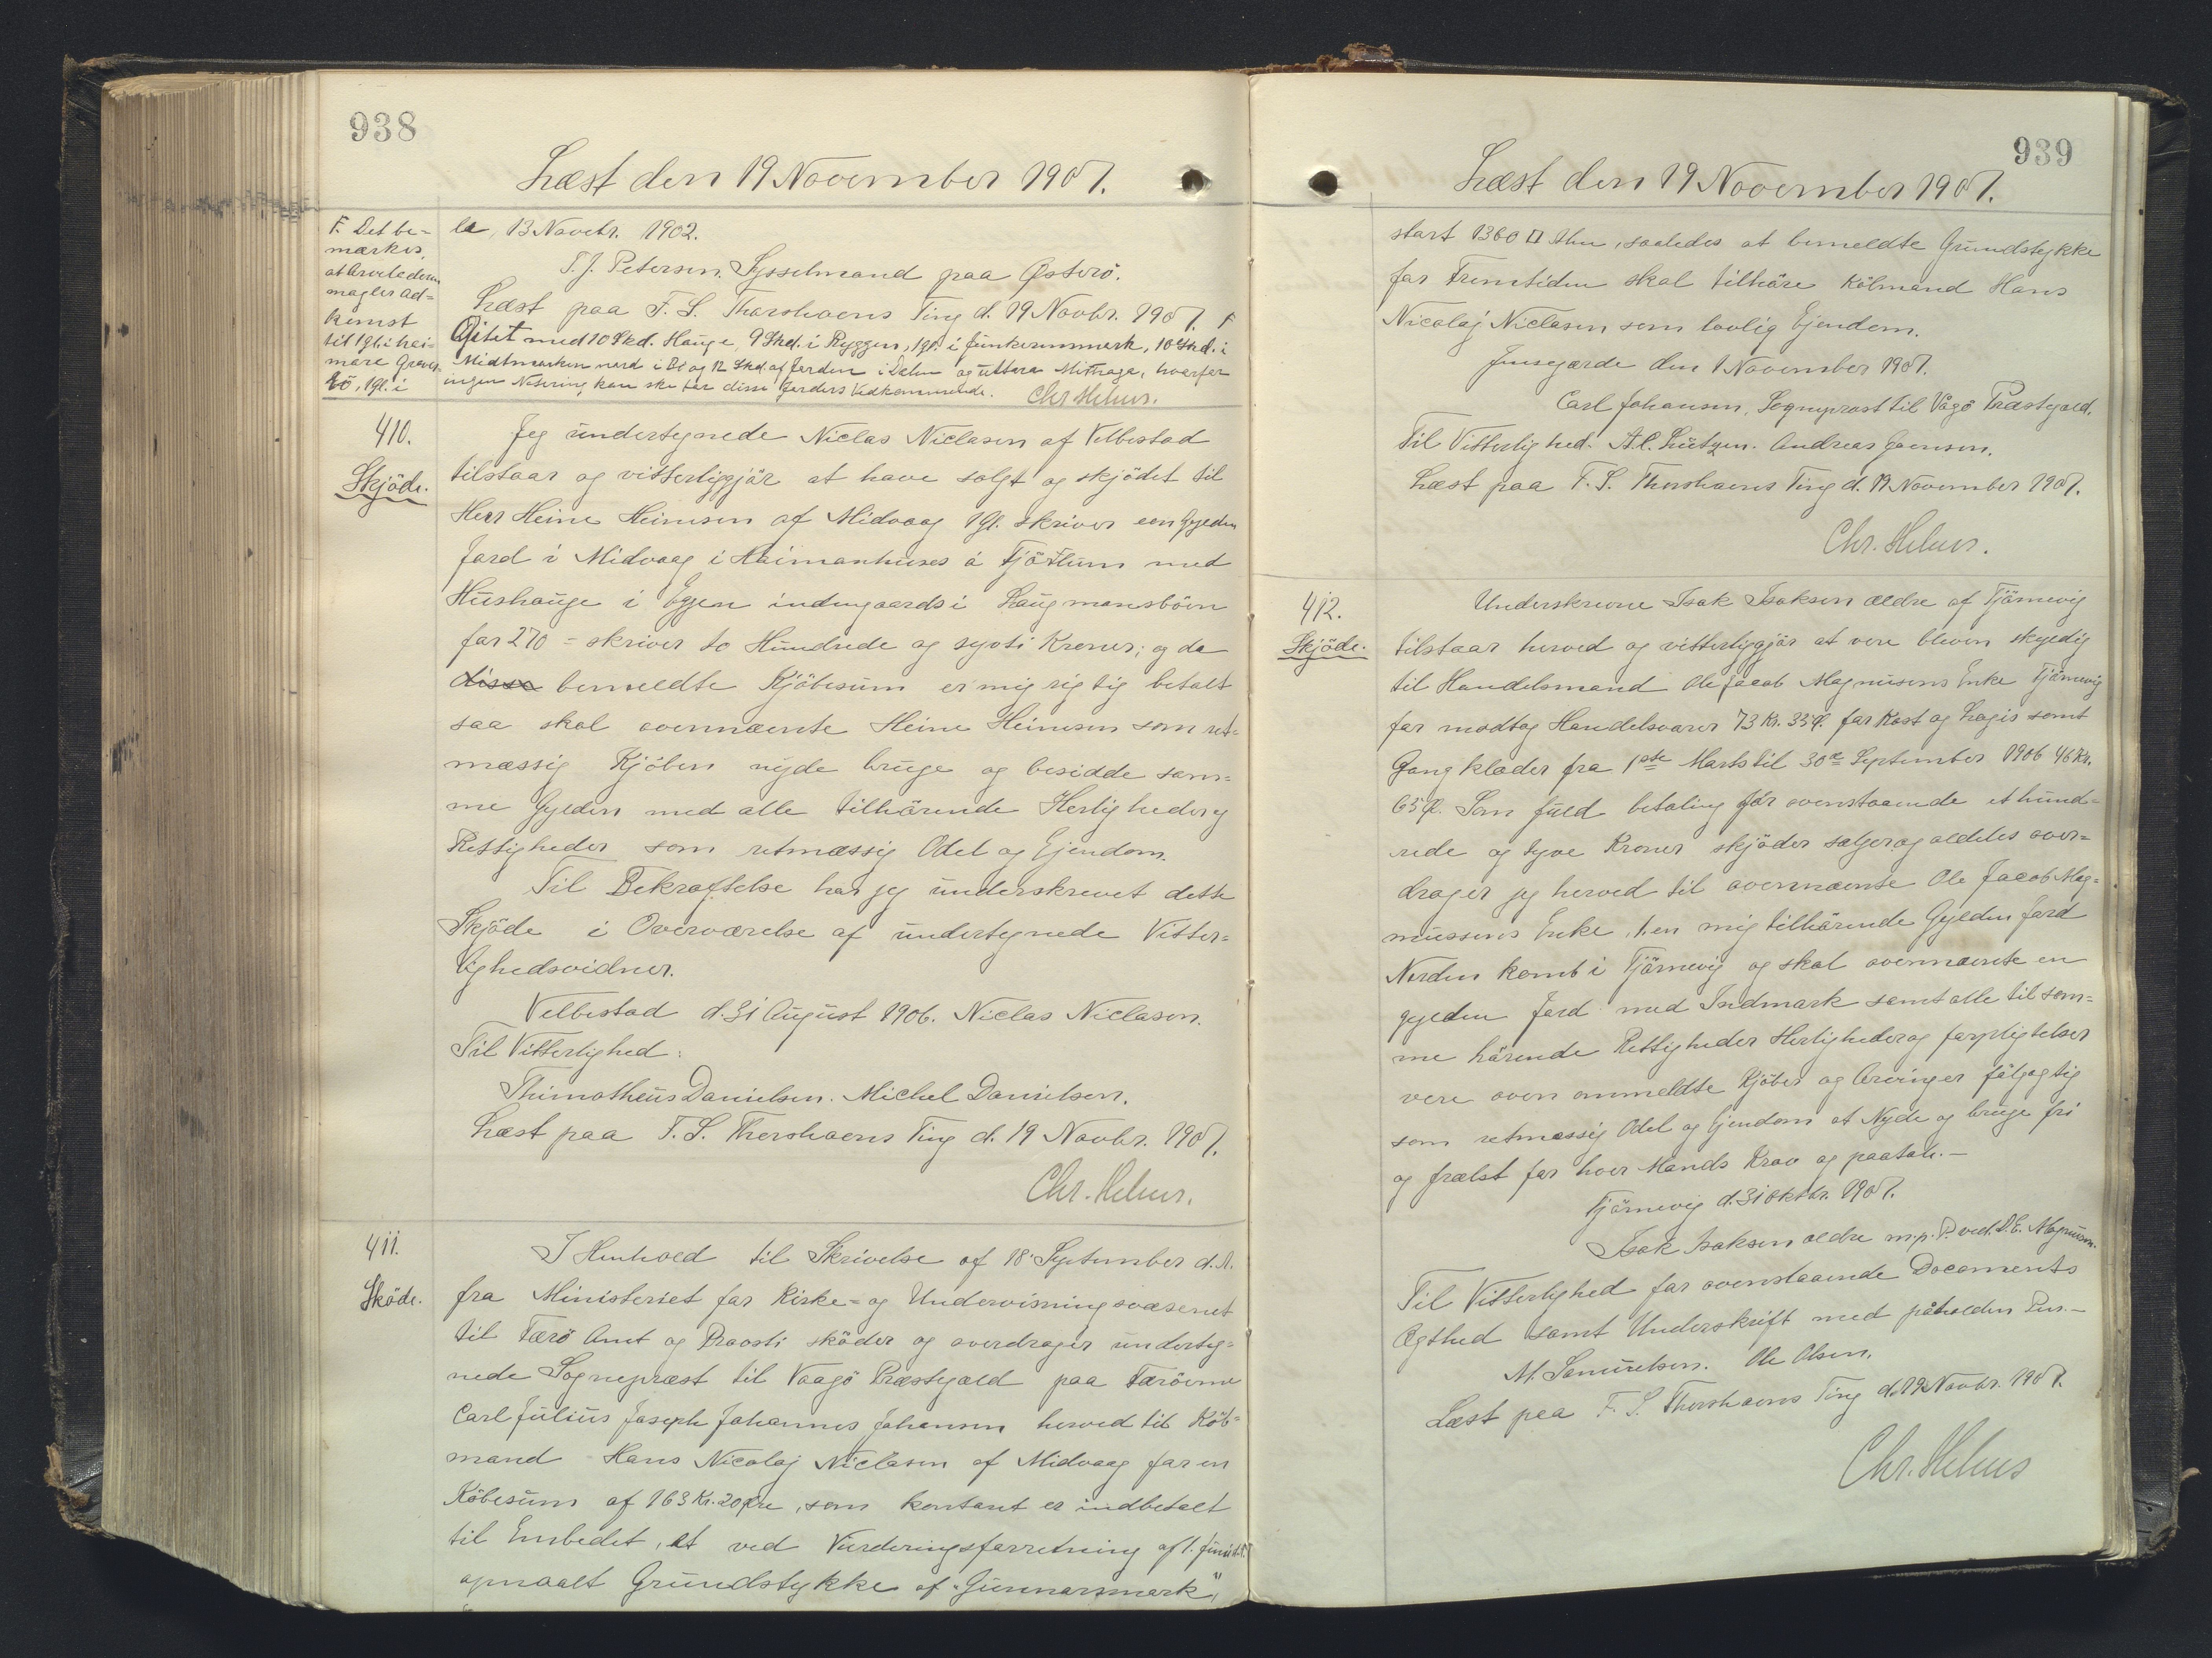 938
Læst den 19 November 1907.
F. Det be-
mærkes,
at Arveladeren
magler ad-
komst
til 1 gl. i hei-
mare Grave
bö, 1 gl. i
le, 13 Novebr. 1902.
T. J. Petersen. Sysselmand paa Østerö.
Læst paa F. S. Thorshavns Ting d. 19 Novbr. 1907. F
Gitet med 10 Skd. Hauge, 9 Skd. i Ryggen, 1 gl. i Junkerinmark, 10 Skd. i
Midtmarken nord i Bö og 12 Skd. af Jorden i Dalen og uttara Mittraga, hvorfor
ingen Notering kan ske for disse Jorders Vedkommende. Chr. Helms.
410.
Skjöde.
Jeg undertegnede Niclas Niclasen af Velbestad
tilstaar og vitterliggjör at have solgt og skjödet til
Herr Heine Heinesen af Midvaag 1 Gl. skriver een Gylden
Jord i Midvaag i Heimanhuses á Fjötlum med
Hushauge i Eggen indengaards i Laugmansböen
for 270 = skriver to Hundrede og syvti Kroner; og da
disse bemeldte Kjöbesum er mig rigtig betalt
saa skal ovennævnte Heine Heinesen som ret-
mæssig Kjöber nyde bruge og besidde sam-
me Gylden med alle tilhörende Herligheder og
Rettigheder som retmæssig Odel og Ejendom.
Til Bekræftelse har jeg underskrevet dette
Skjöde i Overværelse af undertegnede Vitter-
lighedsvidner.
Velbestad d. 31 August 1906. Niclas Niclasen.
Til Vitterlighed:
Thimotheus Danielsen. Michel Danielsen.
Læst paa F. S. Thorshavns Ting d. 19 Novbr. 1907.
Chr. Helms.
411.
Sköde.
I Henhold til Skrivelse af 18 September d. A.
fra Ministeriet for Kirke- og Undervisningsvæsenet
til Færö Amt og Provsti sköder og overdrager underteg-
nede Sognepræst til Vaagö Præstegæld paa Færöerne
Carl Julius Joseph Johannes Johansen herved til Köb-
mand Hans Nicolaj Niclasen af Midvaag for en
Köbesum af 163 Kr. 20 Øre, som kontant er indbetalt
til Embedet, et ved Vurderingsforretning af 1. Juni d. A.
opmaalt Grundstykke af "Gunnarsmark",
939
Læst den 19 November 1907.
stort 1360 □ Alen, saaledes at bemeldte Grundstykke
for Fremtiden skal tilhöre Kölmand Hans
Nicolaj Niclasen som lovlig Ejendom.
Jensegærde den 1 November 1907.
Carl Johansen, Sogneprast til Vågö Præstegæld.
Til Vitterlighed: A. C. Lützen. Andreas Joensen.
Læst paa F. S. Thorshavns Ting d. 19 November 1907.
Chr. Helms.
412.
Skjöde.
Underskrevne Isak Isaksen ældre af Tjörnevig
tilstaar herved og vitterliggjör at vere bleven skyldig
til Handelsmand Ole Jacob Magnusens Enke Tjörnevig
for modtag Handelsvarer 73 Kr. 35 Ø. for Kost og Logis samt
Gangklæder fra 1ste Marts til 30te September 1906 46 Kr.
65 Ø. Som fuld betaling for ovenstaaende et hund-
rede og tyve Kroner skjöder sælger og aldeles over-
drager jeg herved til ovennævnte Ole Jacob Mag-
nussens Enke, 1. en mig tilhörende Gylden Jord
Norden komb i Tjörnevig og skal ovennævnte en
gylden Jord med Indmark samt alle til sam-
me hörende Rettigheder Herligheder og forpligtelser
vere oven ommeldte Kjöber og Arvinger fölgagtig
som retmæssig Odel og Ejendom at Nyde og bruge fri
og frælst for hver Mands Krav og paatale.—
Tjörnevig d. 31 Oktbr. 1907.
Isak Isaksen ældre m. p. P. ved. D. E. Magnusen.
Til Vitterlighed for ovenstaaende Documents
Ægthed samt Underskrift med påholden Pen.—
M. Samuelsen. Ole Olsen.
Læst paa F. S. Thorshavns Ting d. 19 Novbr. 1907.
Chr. Helms